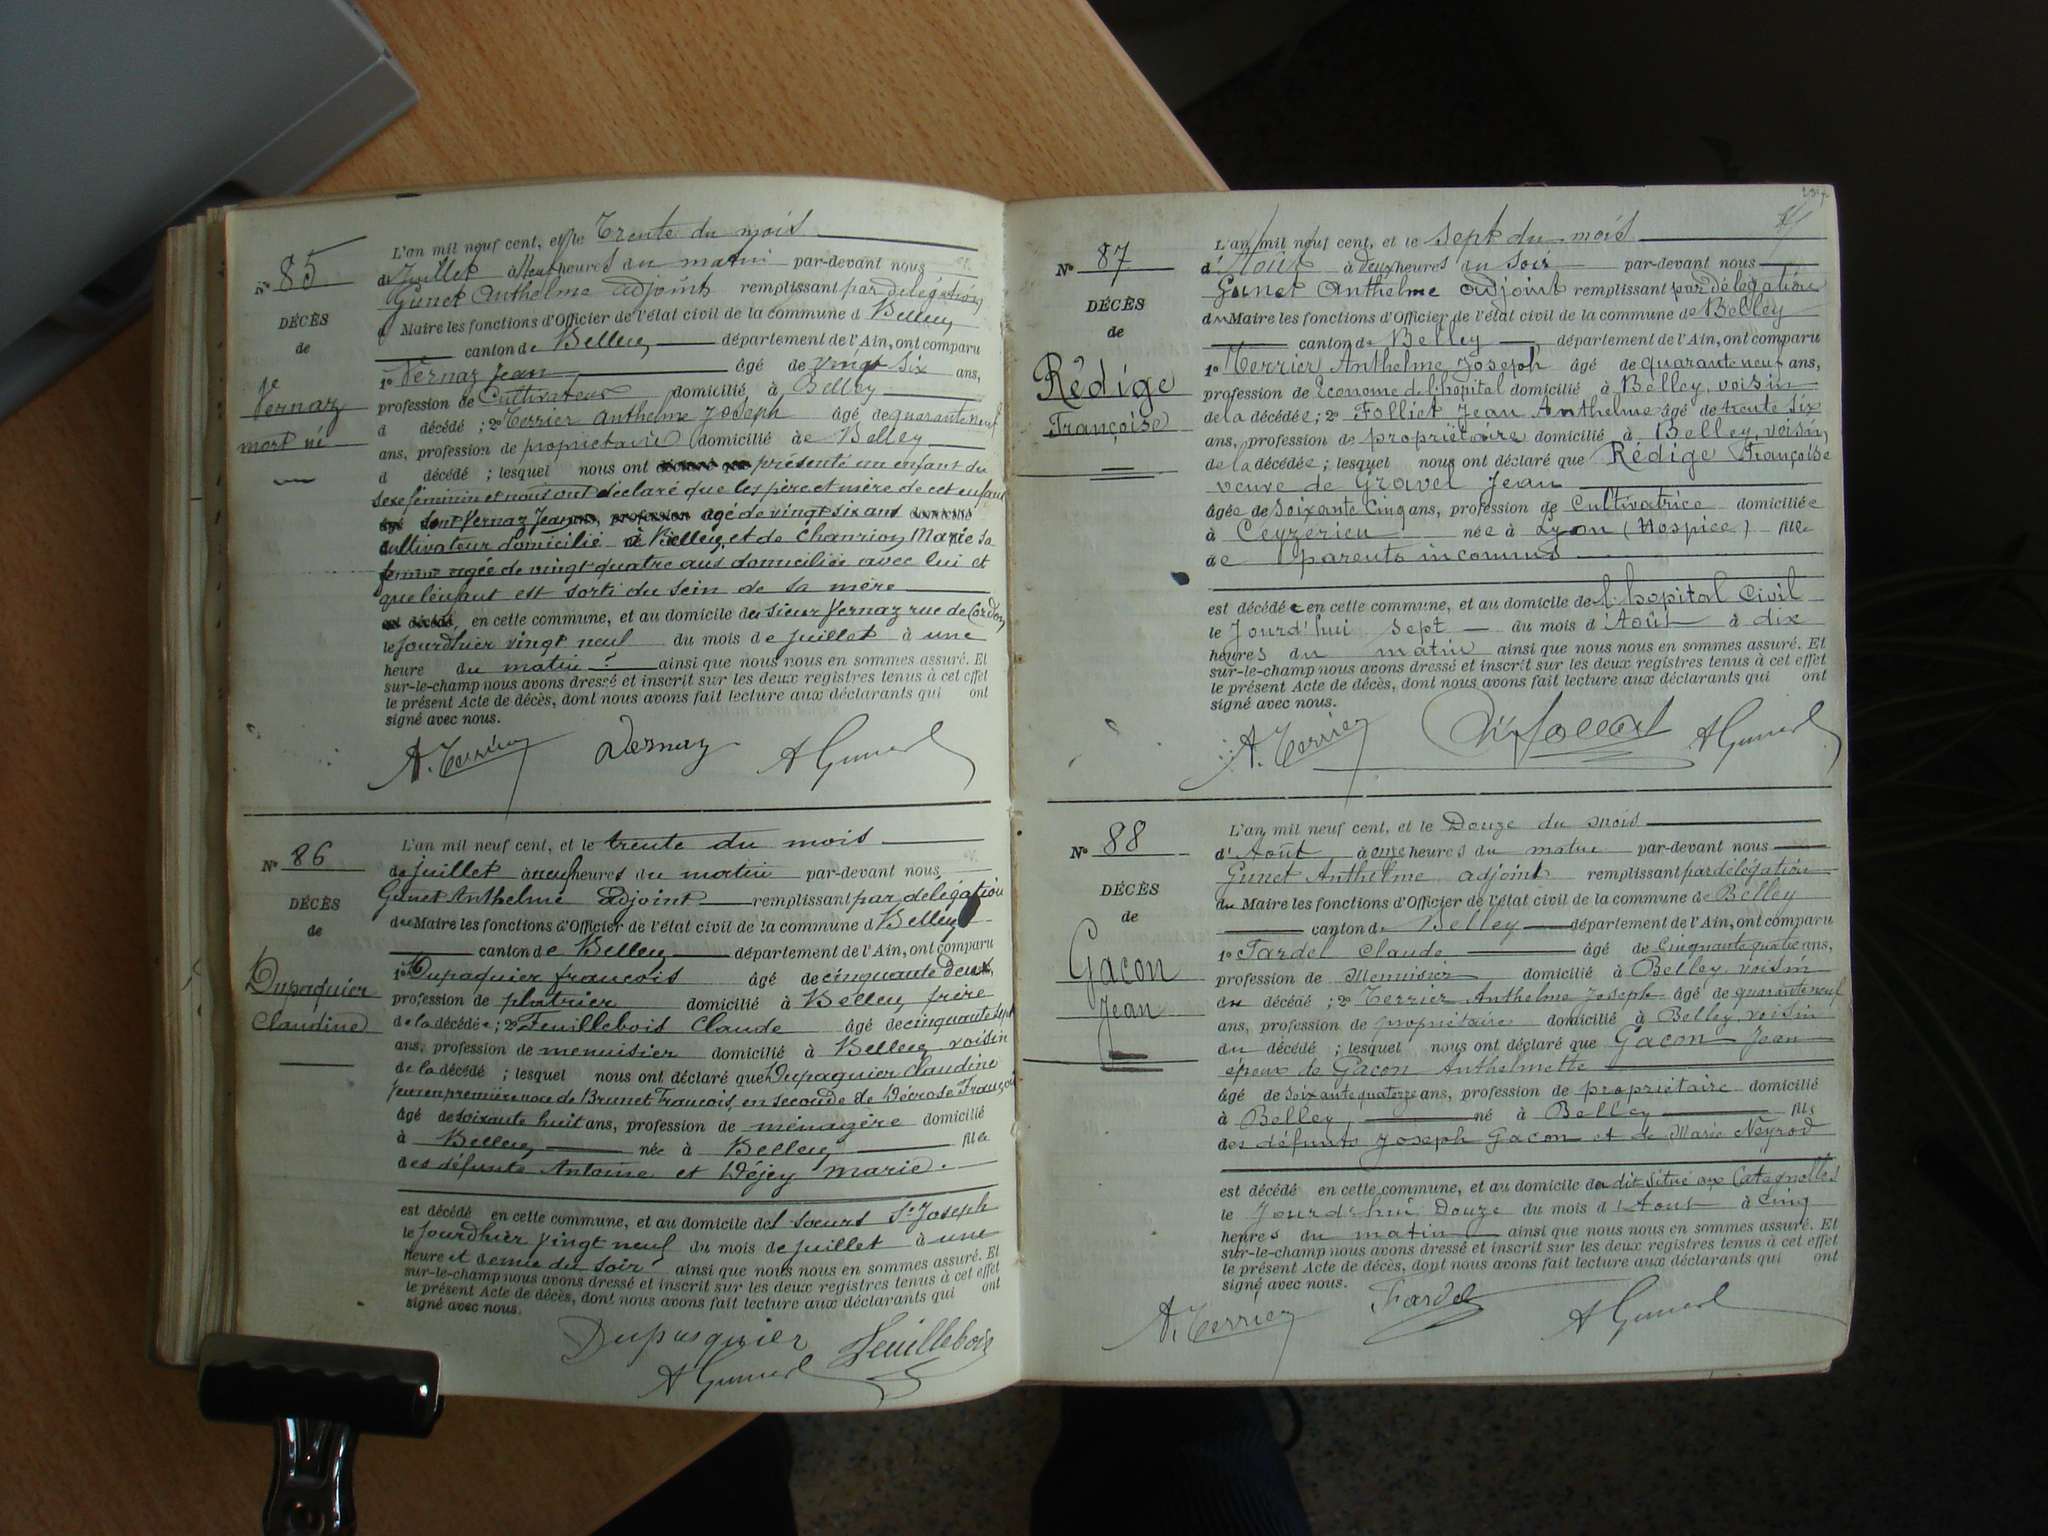 N° 85
DÉCÈS
de
Vernaz
mort né
L'an mil neuf cent, et le Trente du mois
de Juillet à Neuf heures du matin par-devant nous
Gunet Anthelme adjoint remplissant par délégation
Maire les fonctions d'Officier de l'état civil de la commune d Belley
canton de Belley département de l'Ain, ont comparu
1° Vernaz Jean âgé de vingt six ans,
profession de Cultivateur domicilié à Belley
d décédé ; 2° Terrier Anthelme Joseph âgé de quarante neuf
ans, profession de propriétaire domicilié à Belley
d décédé ; lesquel nous ont présenté un enfant du
sexe féminin et nous ont déclaré que les père et mère de cet enfant
sont Vernaz Jean agé de vingt six ans
cultivateur domicilié à Belley, et de Chanrion Marie sa
femme agée de vingt quatre ans domiciliée avec lui et
que l'enfant est sorti du sein de sa mère
en cette commune, et au domicile du sieur Vernaz rue de Cordon
le jourdhier vingt neuf du mois de juillet à une
heure du matin ainsi que nous nous en sommes assuré. Et
sur-le-champ nous avons dressé et inscrit sur les deux registres tenus à cet effet
le présent Acte de décès, dont nous avons fait lecture aux déclarants qui ont
signé avec nous.
A. Terrier Vernaz A Gunet
N° 86
DÉCÈS
de
Dupaquier
Claudine
L'an mil neuf cent, et le trente du mois
de juillet à neuf heures du matin par-devant nous
Gunet Anthelme adjoint remplissant par délégation
du Maire les fonctions d'Officier de l'état civil de la commune d Belley
canton de Belley département de l'Ain, ont comparu
1° Dupaquier françois âgé de cinquante deux,
profession de platrier domicilié à Belley frère
de la décédée ; 2° Feuillebois Claude âgé de cinquante sept
ans, profession de menuisier domicilié à Belley voisin
de la décédé ; lesquel nous ont déclaré que Dupaquier Claudine
en première noce de Brunet François, en seconde de Décrose François
âgé de soixante huit ans, profession de ménagère domicilié
à Belley née à Belley fille
des défunts Antoine et Déjey marie.
est décédé en cette commune, et au domicile des soeurs St Joseph
le jourdhier vingt neuf du mois de juillet à une
heure et demie du soir ainsi que nous nous en sommes assuré. Et
sur-le-champ nous avons dressé et inscrit sur les deux registres tenus à cet effet
le présent Acte de décès, dont nous avons fait lecture aux déclarants qui ont
signé avec nous.
Dupasquier Feuillebois
A Gunet
N° 87
DÉCÈS
de
Rédige
Françoise
L'an mil neuf cent, et le sept du mois
d'Août à deux heures du soir par-devant nous
Gunet Anthelme adjoint remplissant par délégation
du Maire les fonctions d'Officier de l'état civil de la commune de Belley
canton de Belley département de l'Ain, ont comparu
1° Terrier Anthelme Joseph âgé de quarante neuf ans,
profession de Econome de l'hopital domicilié à Belley, voisin
de la décédée ; 2° Folliet Jean Anthelme âgé de trente six
ans, profession de propriétaire domicilié à Belley, voisin,
de la décédée ; lesquel nous ont déclaré que Rédige Françoise
veuve de Gravel Jean
âgée de soixante cinq ans, profession de Cultivatrice domiciliée
à Ceyzérieu née à Lyon (Hospice) fille
de parents inconnus
est décédée en cette commune, et au domicile de l'hopital Civil
le Jourd'hui sept du mois d'Août à dix
heures du matin ainsi que nous nous en sommes assuré. Et
sur-le-champ nous avons dressé et inscrit sur les deux registres tenus à cet effet
le présent Acte de décès, dont nous avons fait lecture aux déclarants qui ont
signé avec nous.
A. Terrier A Gunet
N° 88
DÉCÈS
de
Gacon
Jean
L'an mil neuf cent, et le Douze du mois
d'Août à onze heures du matin par-devant nous
Gunet Anthelme adjoint remplissant par délégation
du Maire les fonctions d'Officier de l'état civil de la commune de Belley
canton de Belley département de l'Ain, ont comparu
1° Fardel Claude âgé de cinquante quatre ans,
profession de Menuisier domicilié à Belley voisin
du décédé ; 2° Terrier Anthelme Joseph âgé de quarante neuf
ans, profession de propriétaire domicilié à Belley, voisin
du décédé ; lesquel nous ont déclaré que Gacon Jean
époux de Gacon Anthelmette
âgé de soixante quatorze ans, profession de propriétaire domicilié
à Belley né à Belley fils
des défunts Joseph Gacon et de Marie Neyrod
est décédé en cette commune, et au domicile du dit situé aux Catagnolles
le Jourd'hui Douze du mois d'Aout à cinq
heures du matin ainsi que nous nous en sommes assuré. Et
sur-le-champ nous avons dressé et inscrit sur les deux registres tenus à cet effet
le présent Acte de décès, dont nous avons fait lecture aux déclarants qui ont
signé avec nous.
A. Terrier Fardel A Gunet